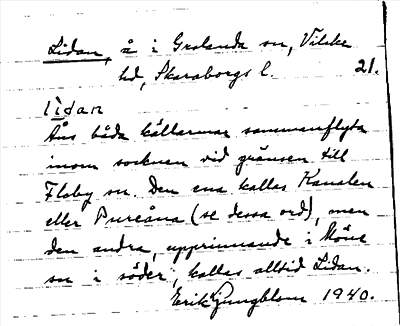 Lidan, å i Grolanda sn, Vilske
hd, Skaraborgs l. 21.
lìdan
Åns båda källarmar sammanflyta
inom socknen vid gränsen till
Floby sn. Den ena kallas Kanalen
eller Pureåna (se dessa ord), men
den andra, upprinnande i Möne
sn i söder, kallas alltid Lidan.
Erik Ljungblom 1940.